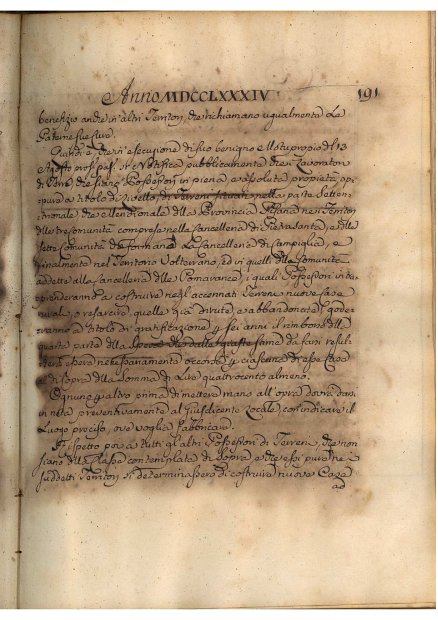 Anno MDCCLXXXIV 191
benefizio anche in altri Territori, che richiamano ugualmente Le
Paterne sue Cure.
Quindi è che in esecuzione di suo benigno Motuproprio del 13
Agosto pross. pass. si Notifica pubblicamente che i Lavoratori
di Beni che siano Possessori in piena, e assoluta proprietà, op-
pure a titolo di Livello, di Terreni situati nella parte Setten-
trionale che Meridionale della Provincia Pisana nei Territori
delle tre Comunità comprese nella Cancelleria di Pietrasanta, e delle
sette Comunità che formano La Cancelleria di Campiglia, e
finalmente nel Territorio Volterrano, ed in quelli delle Comunità
addette alla Cancelleria delle Pomarance, i quali Possessori intra-
prenderanno a costruire negl'accennati Terreni nuove Case
rurali, o resarcire quelle già dirute, e abbandonate, gode-
ranno a titolo di gratificazione p sei anni il rimborso della
quarta parte della Spesa che dalle giustificazione da farsi resul-
terà essere necessariamente occorsa p ciascuna di esse Case
e di sopra della Somma di Lire quattrocento almeno.
Ognuno p altro prima di mettere mano all'opra dovrà dar-
in nota preventivamente al Giusdicente Locale con indicare il
Luogo preciso, ove voglia fabbricare.
Rispetto poi a tutti gl'altri Possessori di Terreni, che non
siano della Classe contemplata di sopra e che essi pure nei
suddetti Territori si determinassero di costruire nuove Case
ad